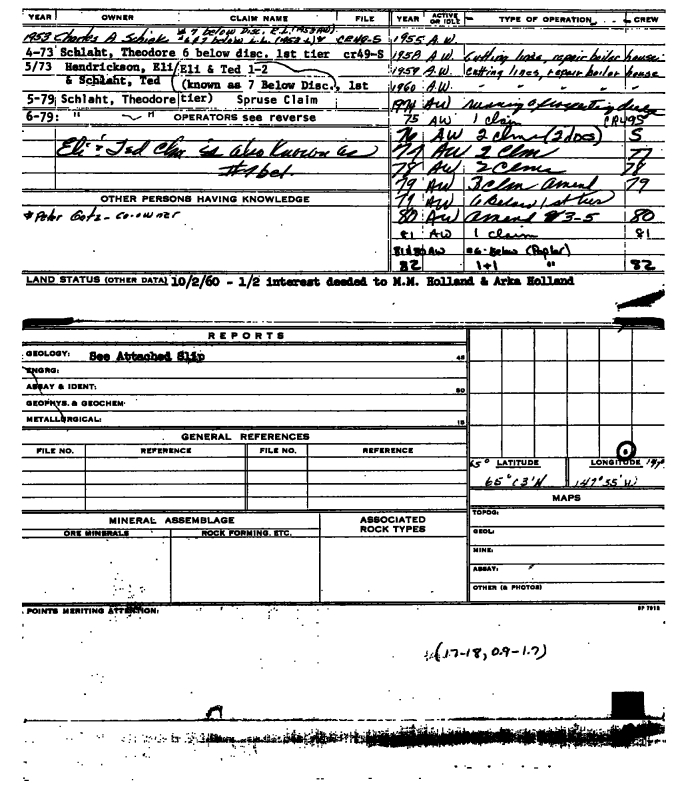 YEAR OWNER CLAIM NAME FILE YEAR ACTIVE OR IDLE TYPE OF OPERATION CREW
1953 Charles A Schiek # 7 below Disc. R.L. (1953 AW) CR49-S 1955 A.W.
4-73 Schlaht, Theodore 6 below disc, 1st tier cr49-S 1958 A.W. Cutting lines, repair boiler house
5/73 Hendrickson, Eli Eli & Ted 1-2 1959 A.W. Cutting lines, repair boiler house
& Schlaht, Ted (known as 7 Below Disc., 1st 1960 A.W. " " " "
5-79 Schlaht, Theodore tier) Spruse Claim 1974 AW
6-79: " " OPERATORS see reverse 75 AW 1 claim CR49S
76 AW 2 clms (2 locs) S
Eli & Ted Clm is also Known as 77 AW 2 Clm 77
#7 bel. 78 AW 2 Clms 78
79 AW 3 clm amend 79
OTHER PERSONS HAVING KNOWLEDGE 79 AW 6 Below 1st tier
* Peter Gotz - co-owner 80 AW amend #3-5 80
81 AW 1 claim 81
81d80 AW #6-Below (Poplar)
82 1+1 " 82
LAND STATUS (OTHER DATA) 10/2/60 - 1/2 interest deeded to M.M. Holland & Arka Holland
REPORTS
GEOLOGY: See Attached Slip 45
ENGRG:
ASSAY & IDENT: 50
GEOPHYS. & GEOCHEM
METALLURGICAL: 15
GENERAL REFERENCES
FILE NO. REFERENCE FILE NO. REFERENCE
65° LATITUDE LONGITUDE 147°
65°13'N 147°55'W
MAPS
MINERAL ASSEMBLAGE ASSOCIATED ROCK TYPES
ORE MINERALS ROCK FORMING, ETC.
TOPOG:
GEOL:
MINE:
ASSAY:
OTHER (& PHOTOS)
POINTS MERITING ATTENTION: SP 7915
(17-18, 0.9-1.7)